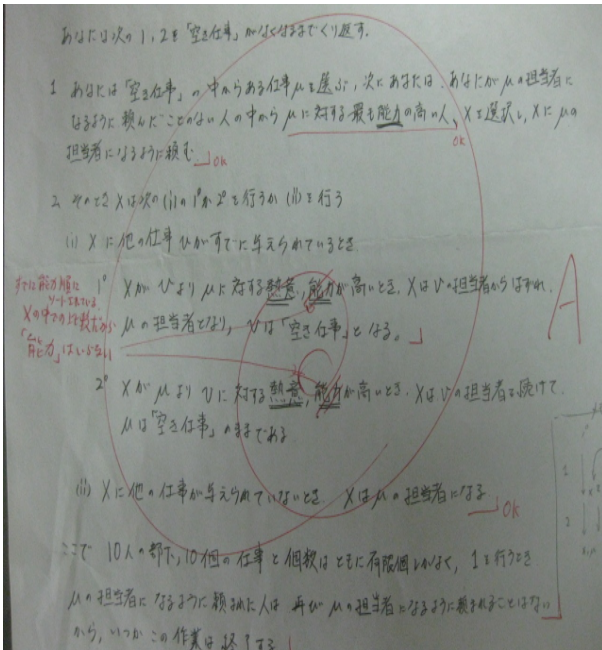 あなたは次の1,2を「空き仕事」がなくなるまでくり返す。
1 あなたは「空き仕事」の中からある仕事μを選ぶ、次にあなたは、あなたがμの担当者に
なるように頼んだことのない人の中からμに対する最も能力の高い人、Xを選択し、Xにμの
担当者になるように頼む
OK
OK
2 そのときXは次の(i)の1°か2°を行うか(ii)を行う
(i) Xに他の仕事νがすでに与えられているとき
1° Xがνよりμに対する熱意,能力が高いとき、Xはνの担当者からはずれ、
μの担当者となり、νは「空き仕事」となる。
すでに能力順に
ソートされている
Xの中での
「能力」はいらない
A
2° Xがμよりνに対する熱意,能力が高いとき、Xはνの担当者を続けて
μは「空き仕事」のままである
(ii) Xに他の仕事が与えられていないとき Xはμの担当者になる
OK
ここで 10人の部下,10個の仕事と個数はともに有限個しかなく、1を行うとき
μの担当者になるように頼まれた人は 再びμの担当者になるように頼まれることはない
から、いつかこの作業は終了する
1
2